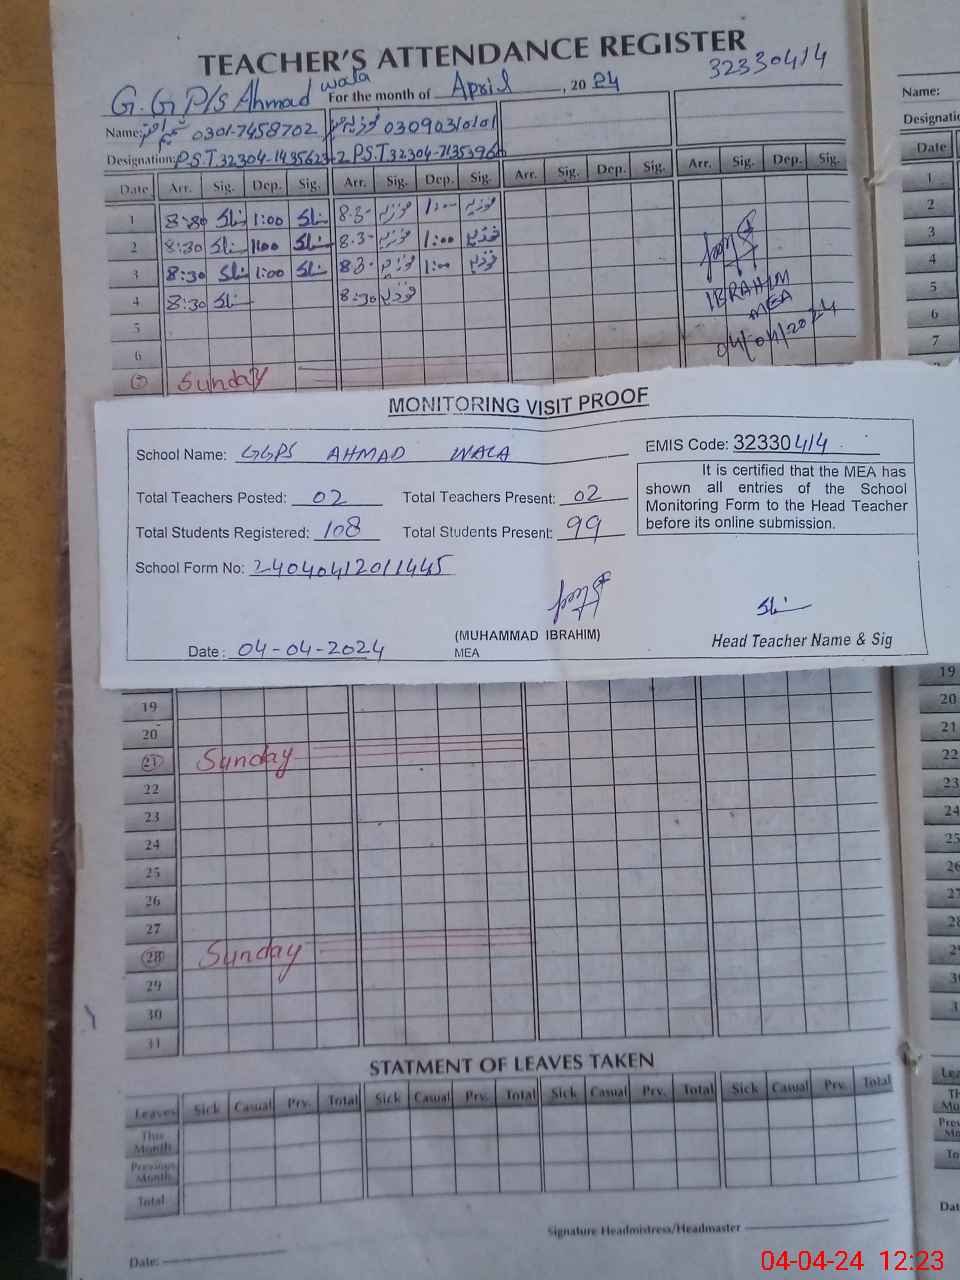 TEACHER'S ATTENDANCE REGISTER
32330414
G.G P/S Ahmad wala For the month of April, 2024
Name: شمیم اختر 0301-7458702 فوزیہ 03090310101
Designation: P.S.T 32304-1435623-2 P.S.T 32304-7135396
Date Arr. Sig. Dep. Sig. Arr. Sig. Dep. Sig. Arr. Sig. Dep. Sig. Arr. Sig. Dep. Sig.
1 8:30 1:00 8.3- فوزیہ 1:-- فوزیہ
2 8:30 1:00 8.3- فوزیہ 1:00 فوزیہ
3 8:30 1:00 8.3- فوزیہ 1:00 فوزیہ
4 8:30 8:30 فوزیہ
5
6
7 Sunday
IBRAHIM
MEA
04/04/2024
MONITORING VISIT PROOF
School Name: GGPS AHMAD WALA
EMIS Code: 32330414
Total Teachers Posted: 02 Total Teachers Present: 02
Total Students Registered: 108 Total Students Present: 99
School Form No: 24040412011445
It is certified that the MEA has
shown all entries of the School
Monitoring Form to the Head Teacher
before its online submission.
Date: 04-04-2024
(MUHAMMAD IBRAHIM)
MEA
Head Teacher Name & Sig
19
20
21 Sunday
22
23
24
25
26
27
28 Sunday
29
30
31
STATMENT OF LEAVES TAKEN
Leaves Sick Casual Prv. Total Sick Casual Prv. Total Sick Casual Prv. Total Sick Casual Prv. Total
This Month
Previous Month
Total
Signature Headmistress/Headmaster
Date:
Name:
Date
1
2
3
4
5
6
7
19
20
21
22
23
24
04-04-24 12:23